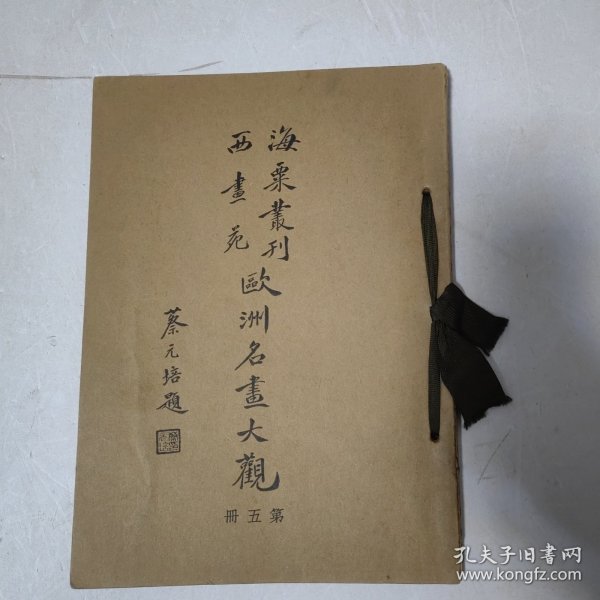 海粟叢刊
西畫苑
歐洲名畫大觀
蔡元培題
第五冊
孔夫子旧书网
www.kongfz.com